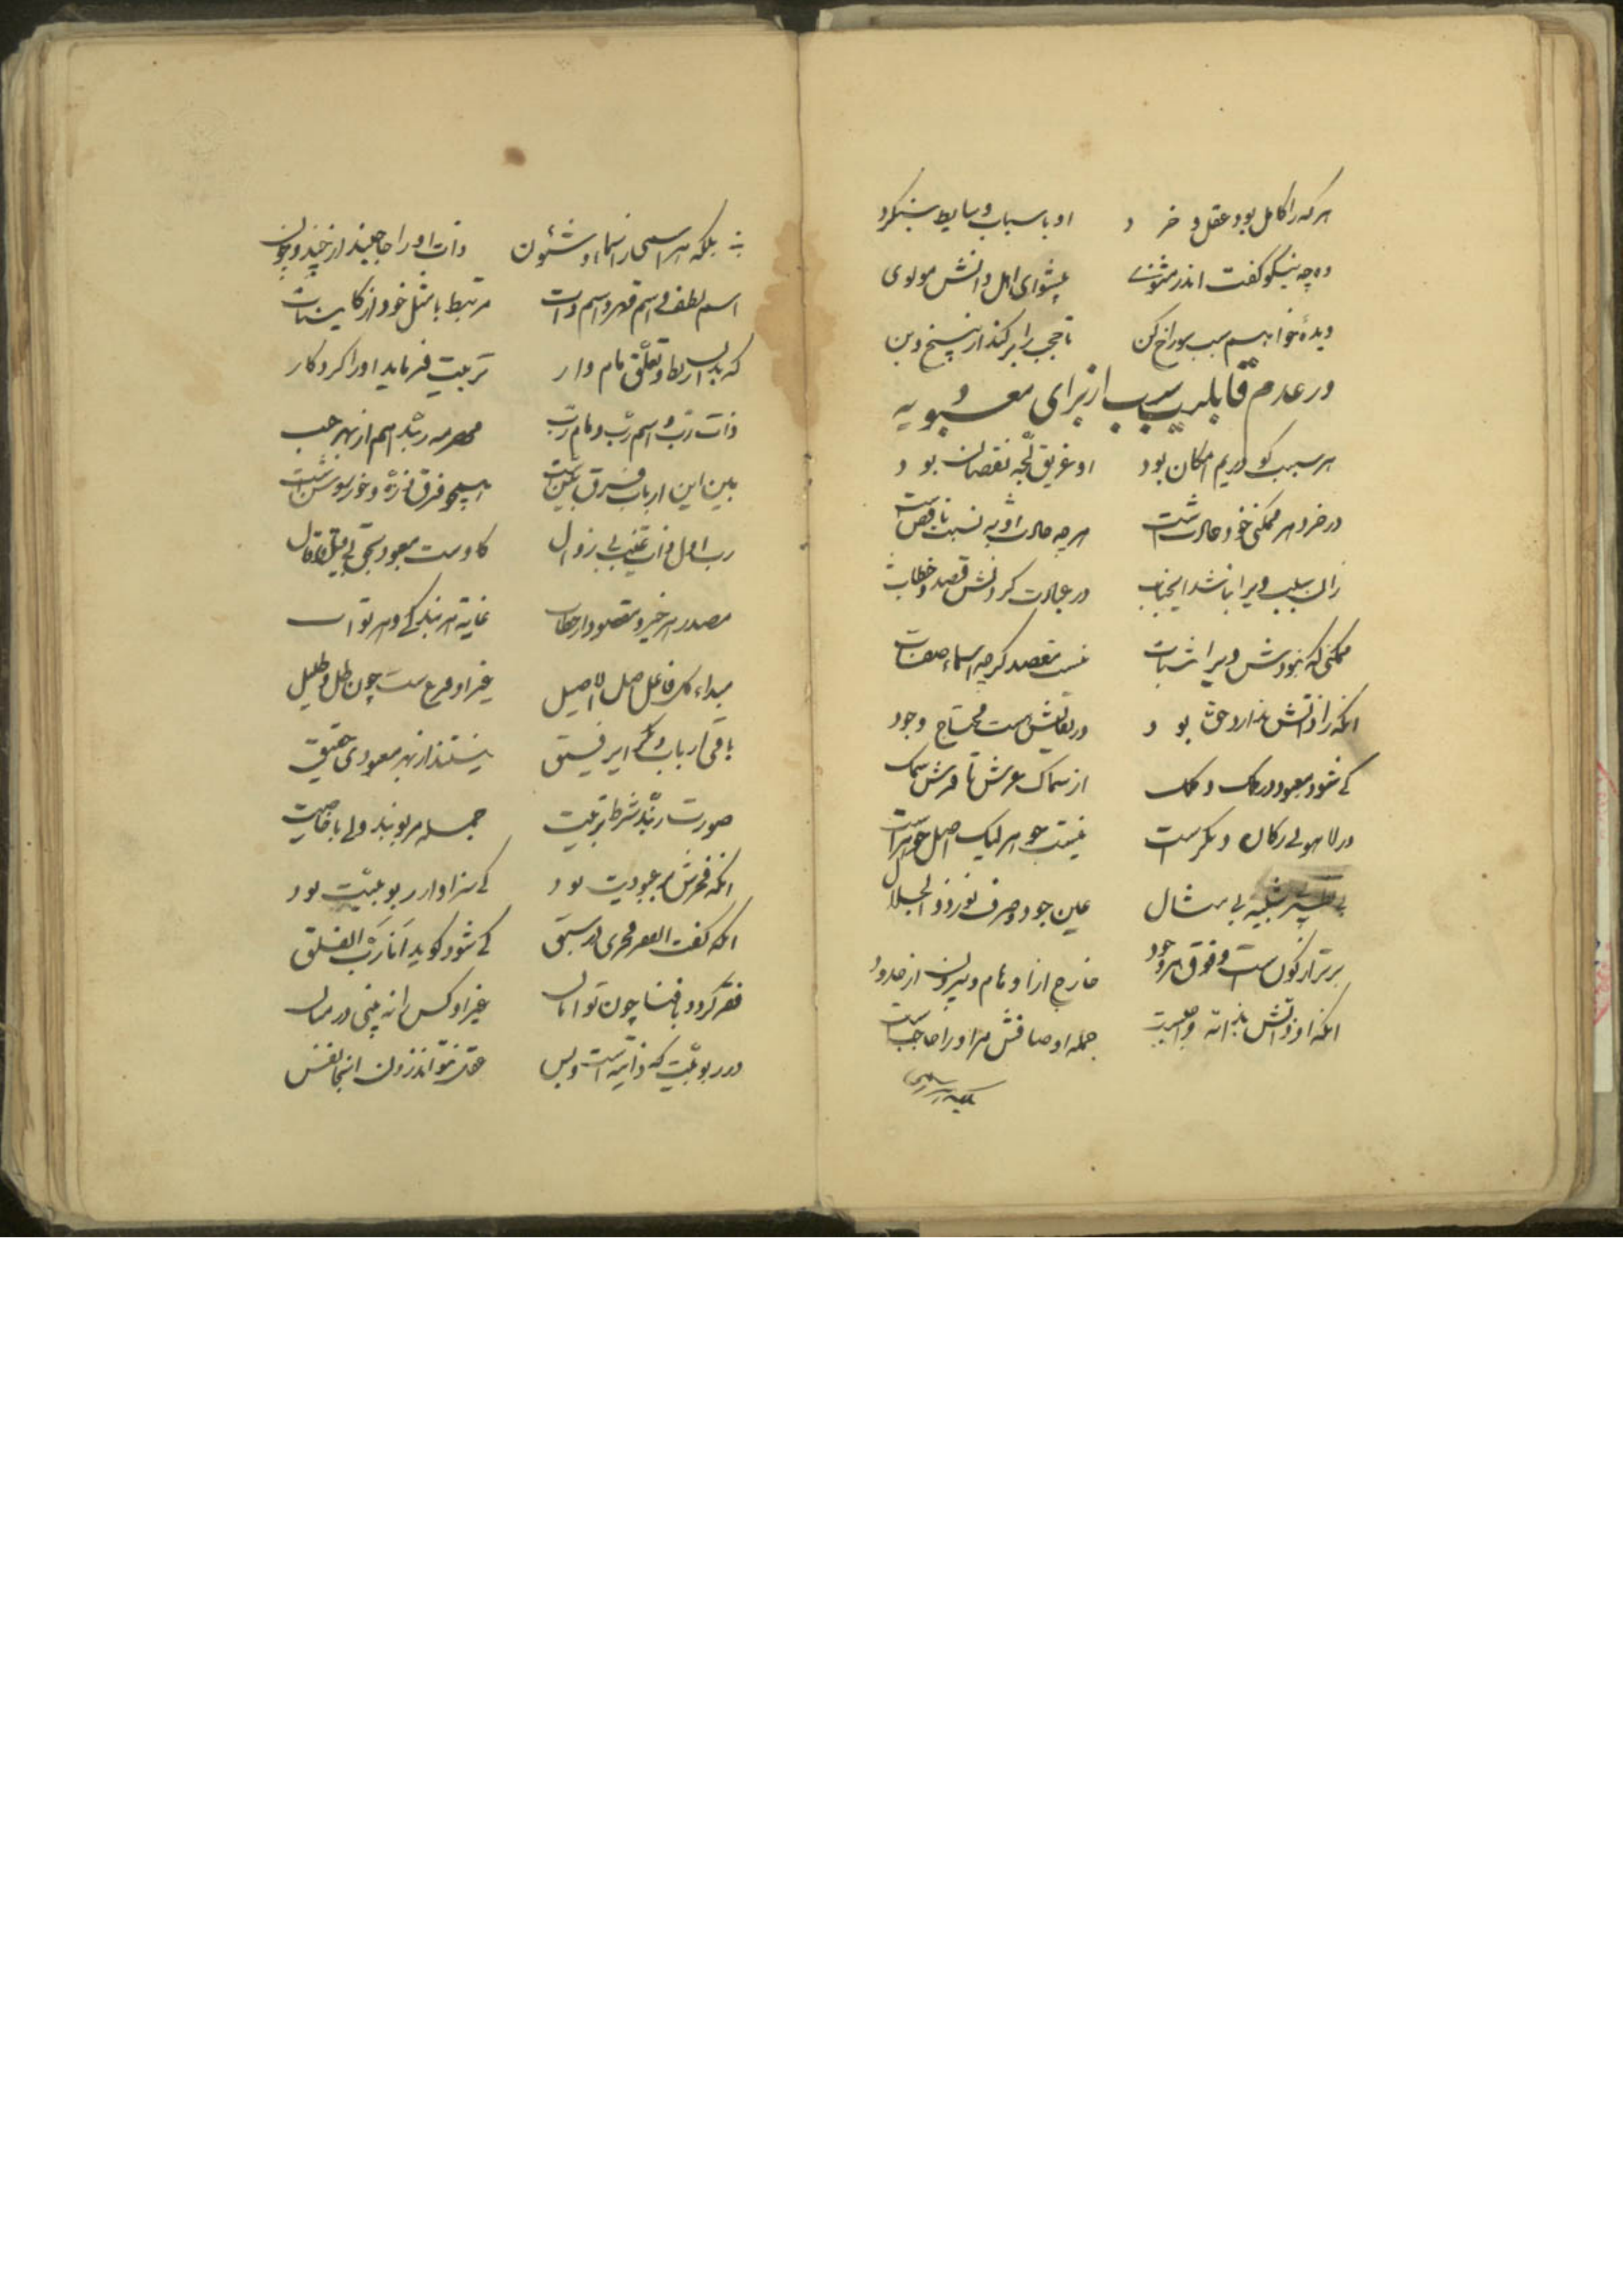 هر که را کامل بود عقل و خرد او باسباب و سایط ننگرد
وه چه نیکو گفت اندر مثنوی پیشوای اهل دانش مولوی
دیدهٔ خواهم سبب سوراخ کن تا حجب را بر کند از بیخ و بن
در عدم قابلیت سبب از برای معبودیه
هر سبب کو در یم امکان بود او غریق لجه نقصان بود
در خرد هر ممکنی خود حادث است هر چه حادث شد به نسبت ناقص است
زان سبب ویرا نباشد ایجناب در عبادت کردنش قصد و خطاب
ممکنی که نبودش ویرا ثبات نیست مقصد گرچه اسماء صفات
آنکه را ذاتش ندارد حق بود در بقایش هست محتاج وجود
کی شود معبود در ملک و ملک از سماک عرش تا فرش سمک
در لاهوتی ز کان دیگر است نیست جوهر لیک اصل جوهر است
بی شبیه بی مثال عین جود و صرف نور ذو الجلال
برتر از کون است و فوق هر وجود خارج از اوهام و بیرون از حدود
آنکه او ذاتش بذاته واجب است جمله اوصافش مر او را حاجب است
بلکه هر اسمی
بلکه هر اسمی ز اسماء و شئون ذات او را حاجبند از چند و چون
اسم لطف و اسم قهر و اسم ذات مرتبط با مثل خود از کاینات
که بدین ربط و تعلق نامدار تربیت فرماید او را کردگار
ذات رب و اسم رب و نام رب هر سه ربند اسم از بهر حجب
بین این ارباب فرق بین است همچو فرق ذره و خور روشن است
رب اول ذات غیب بی زوال کاوست معبود بحق بی قیل و قال
مصدر هر خیر و مقصود از خطاب غایة هر بندگی و هر ثواب
مبداء کل فاعل اصل الاصیل غیر او فرع است چون ظل و ظلیل
باقی ارباب دیگر ای رفیق نیستند از بهر معبودی حقیق
صورت ربند شرط تربیت جمله مربوبند ولی با خاصیت
آنکه فخرش بر عبودیت بود کی سزاوار ربوبیت بود
آنکه گفت الفقر فخری در سبق کی شود گوید انا رب الفلق
فقر گردد با فنا چون توامان غیر او کس را نه بینی در میان
در ربوبیت که ذاتیه است و بس عقل نتواند زدن اینجا نفس